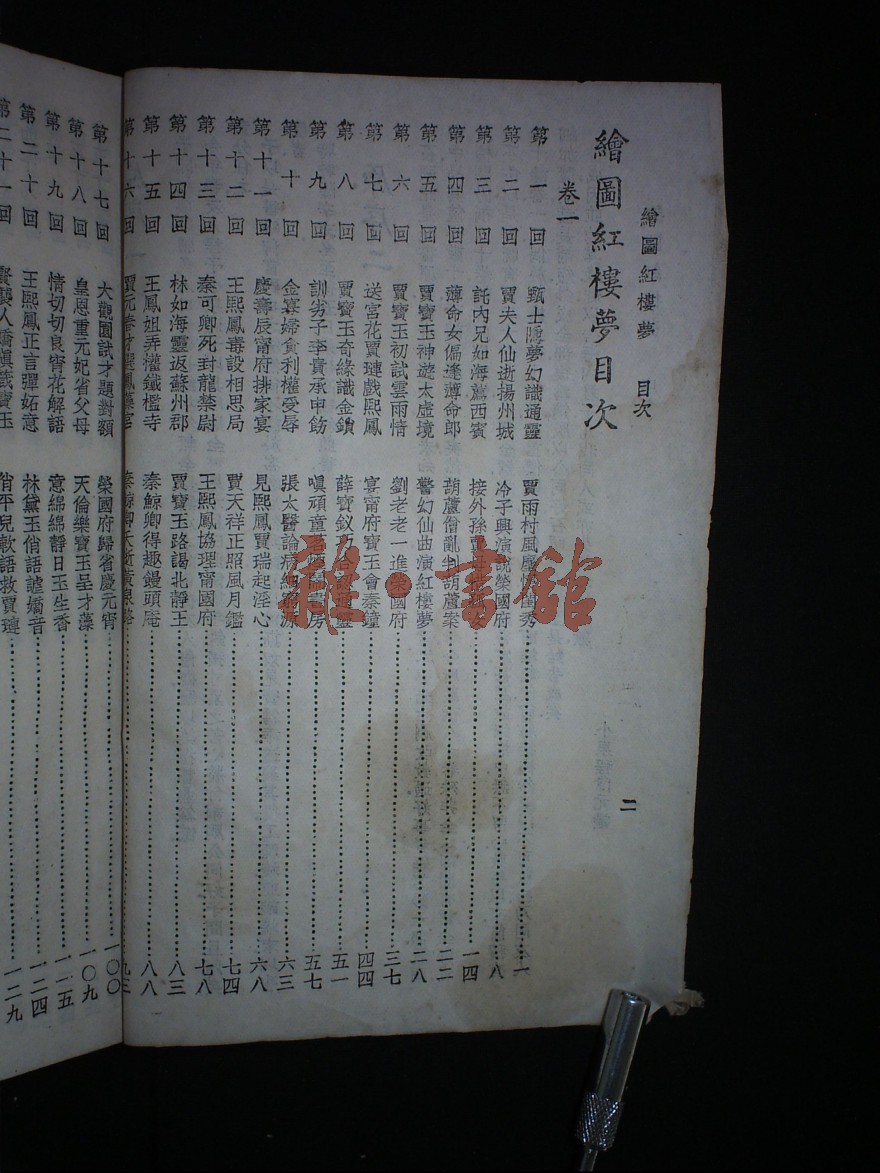 繪圖紅樓夢 目次
二
繪圖紅樓夢目次
卷一
第一回 甄士隱夢幻識通靈 賈雨村風塵懷閨秀 一
第二回 賈夫人仙逝揚州城 冷子興演說榮國府 八
第三回 託內兄如海薦西賓 接外孫賈母 一四
第四回 薄命女偏逢薄命郎 葫蘆僧亂判葫蘆案 二二
第五回 賈寶玉神遊太虛境 警幻仙曲演紅樓夢 二八
第六回 賈寶玉初試雲雨情 劉老老一進榮國府 三七
第七回 送宮花賈璉戲熙鳳 宴甯府寶玉會秦鐘 四四
第八回 賈寶玉奇緣識金鎖 薛寶釵巧合識通靈 五一
第九回 訓劣子李貴承申飭 嗔頑童茗煙鬧書房 五七
第十回 金寡婦貪利權受辱 張太醫論病細窮源 六三
第十一回 慶壽辰甯府排家宴 見熙鳳賈瑞起淫心 六八
第十二回 王熙鳳毒設相思局 賈天祥正照風月鑑 七四
第十三回 秦可卿死封龍禁尉 王熙鳳協理甯國府 七八
第十四回 林如海靈返蘇州郡 賈寶玉路謁北靜王 八三
第十五回 王鳳姐弄權鐵檻寺 秦鯨卿得趣饅頭庵 八八
第十六回 賈元春才選鳳藻宮 秦鯨卿夭逝黃泉路 九三
第十七回 大觀園試才題對額 榮國府歸省慶元宵 一〇〇
第十八回 皇恩重元妃省父母 天倫樂寶玉呈才藻 一〇九
第十九回 情切切良宵花解語 意綿綿靜日玉生香 一一五
第二十回 王熙鳳正言彈妬意 林黛玉俏語謔嬌音 一二四
第二十一回 賢襲人嬌嗔箴寶玉 俏平兒軟語救賈璉 一二九
雜·書館